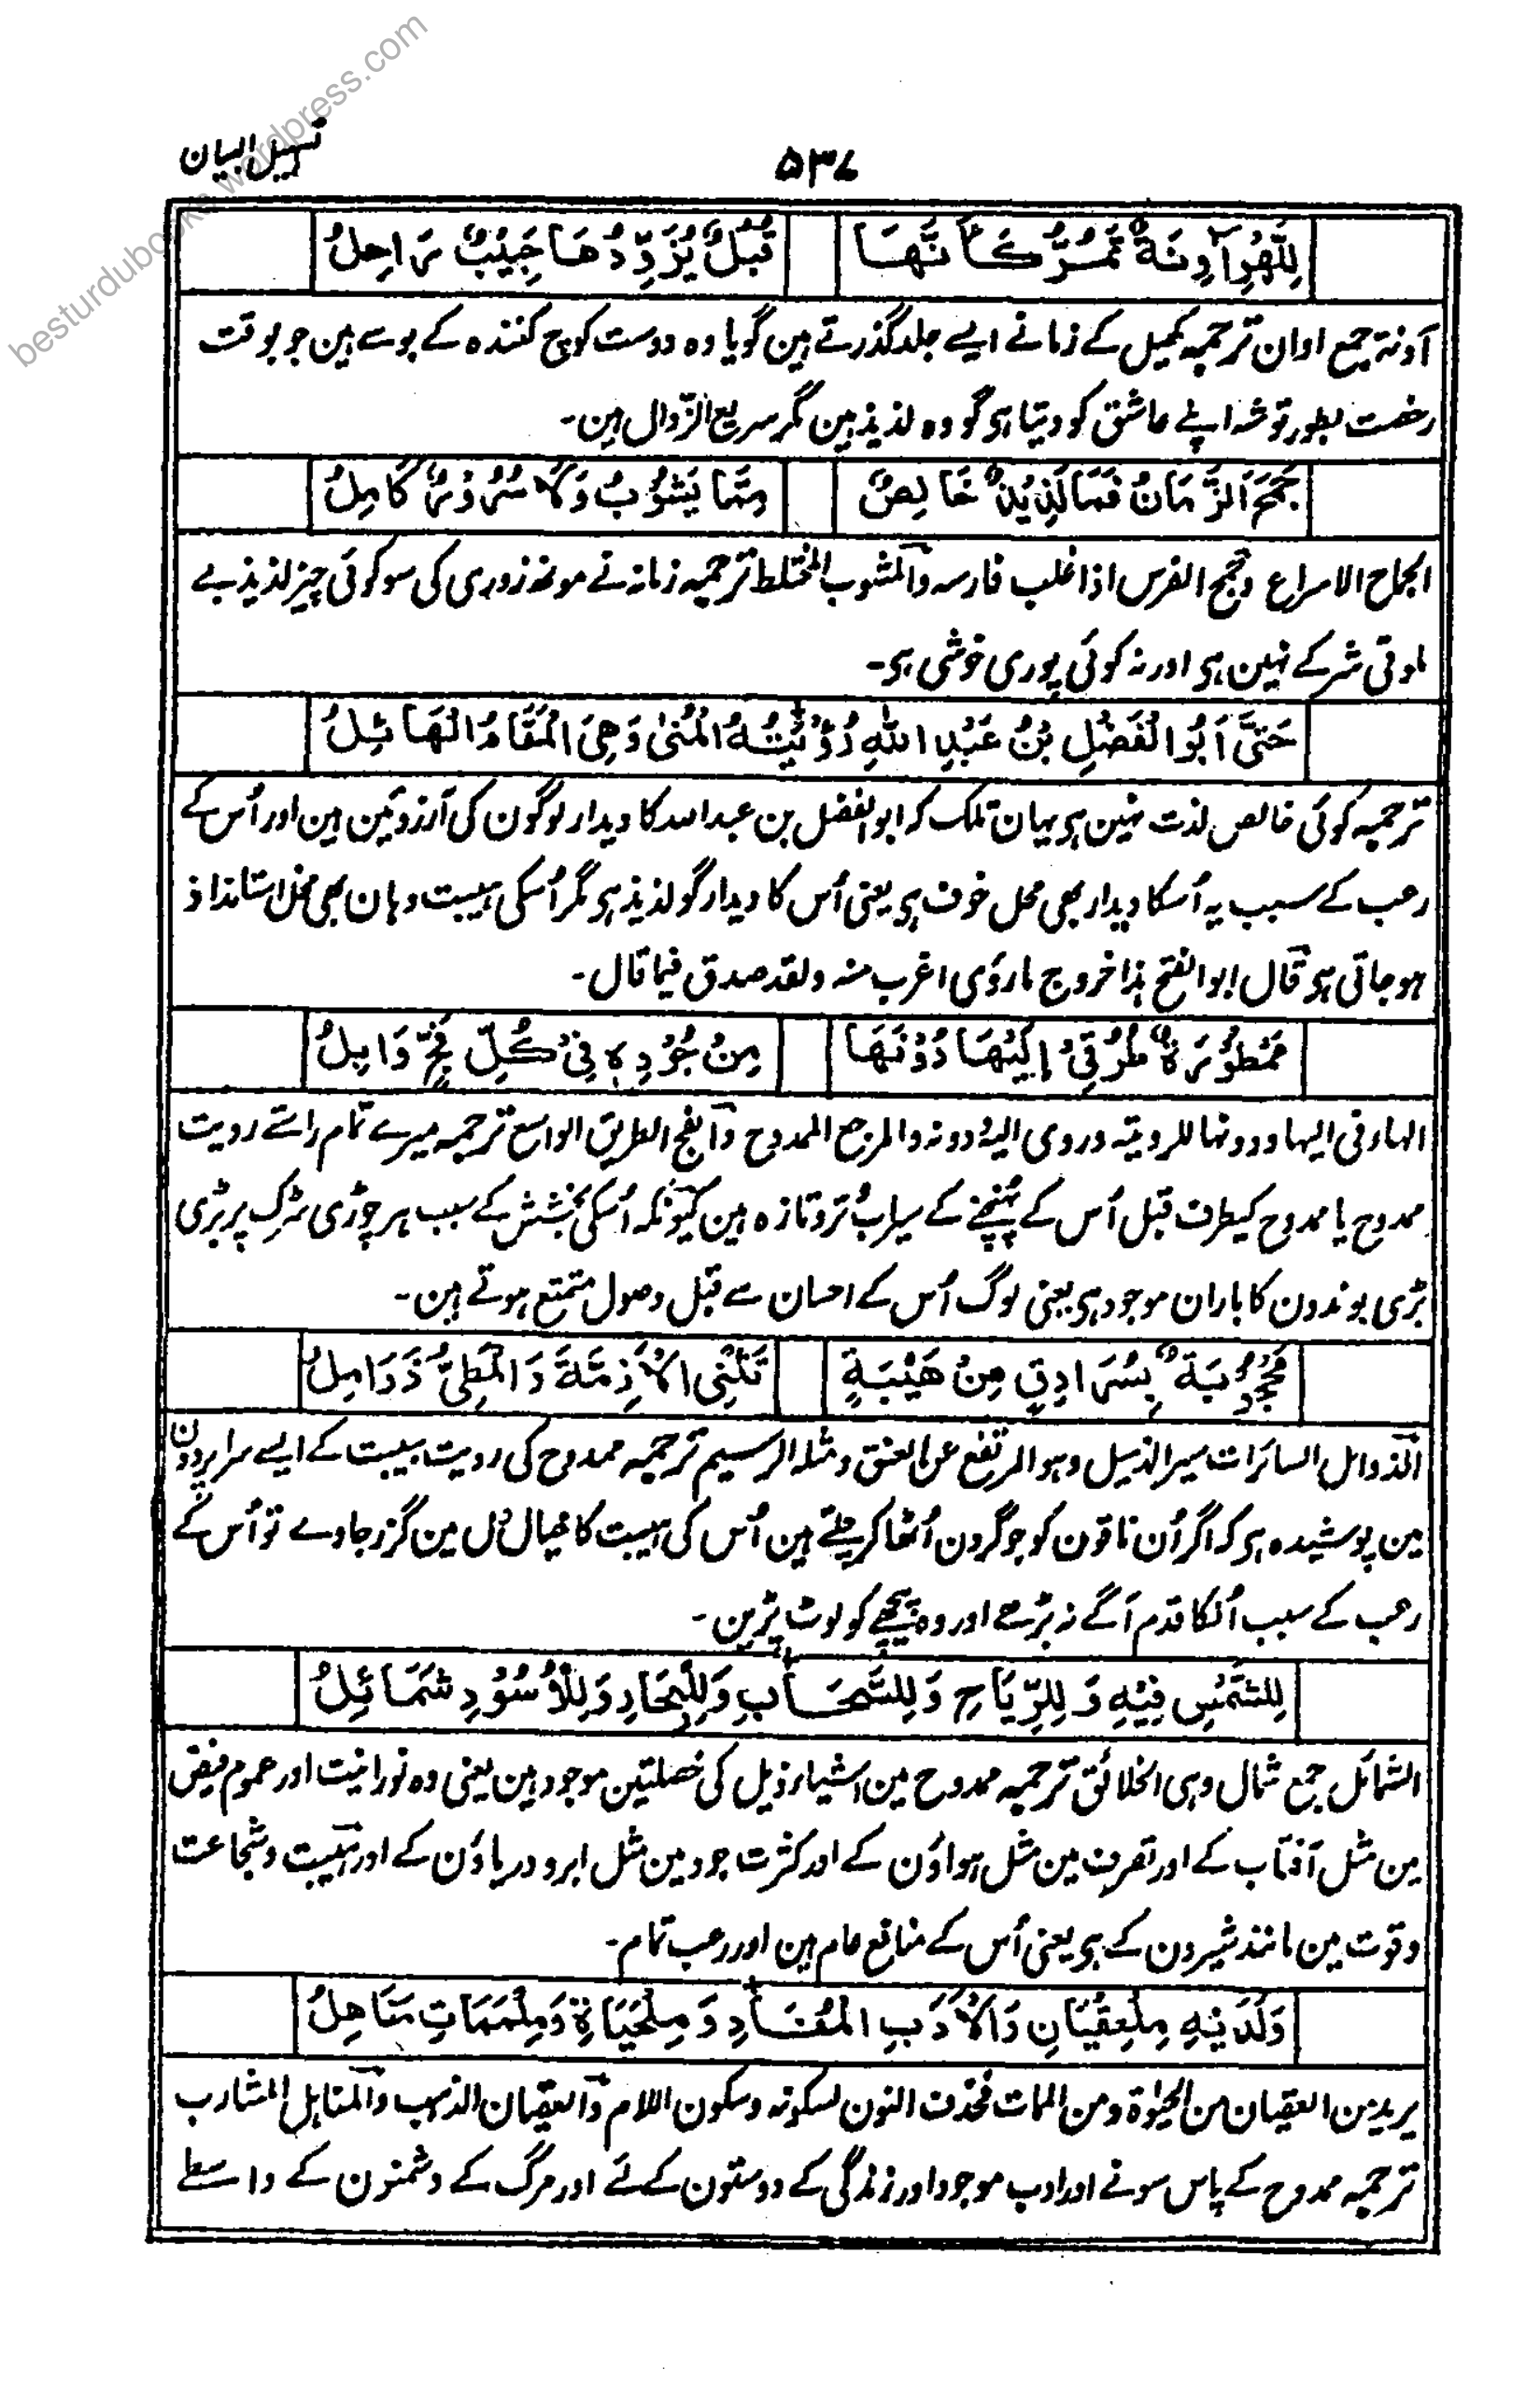 تسہیل البیان
۵۳۷
لِلَّهْوِ اٰوِنَةٌ تَمُرُّ كَاَنَّهَا قُبَلٌ يُزَوِّدُهَا حَبِيْبٌ رَاحِلُ
آونۃ جمع اوان ترجمہ کھیل کے زمانے ایسے جلد گذرتے ہین گویا وہ دوست کوچ کنندہ کے بوسے ہین جو بوقت
رخصت بطور توشہ اپنے عاشق کو دیتا ہی گو وہ لذیذ ہین مگر سریع الزوال ہین۔
جَمَحَ الزَّمَانُ فَمَا لَذِيْذٌ خَالِصٌ مِمَّا يَشُوْبُ وَلَا سُرُوْرٌ كَامِلُ
الجماح الاسراع وجمح الفرس اذا غلب فارسہ والمشوب المختلط ترجمہ زمانہ نے مونھ زوری کی سو کوئی چیز لذیذ بے
ملوقی شر کے نہین ہی اور نہ کوئی پوری خوشی ہی۔
حَتّٰى اَبُو الْفَضْلِ بْنُ عَبْدِ اللّٰهِ رُؤْيَتُهُ الْمُنىٰ وَهِىَ الْمَقَامُ الْهَائِلُ
ترجمہ کوئی خالص لذت نہین ہی یہان تلک کہ ابو الفضل بن عبداللہ کا دیدار لوگون کی آرزوئین ہین اور اُس کے
رعب کے سبب یہ اُسکا دیدار بھی محل خوف ہی یعنی اُس کا دیدار گو لذیذ ہی مگر اُسکی ہیبت وہان بھی مخل استلذاذ
ہو جاتی ہی قال ابو الفتح ہذا خروج ما روی اغرب منہ ولقد صدق فیما قال۔
مَمْطُوْرَةٌ طُرُقِىْ اِلَيْهَا دُوْنَهَا مِنْ جُوْدِهٖ فِىْ كُلِّ فَجٍّ وَابِلُ
الہاء فی الیہا و دونہا للرویۃ و روی الیہ و دونہ والمرجع الممدوح والفج الطریق الواسع ترجمہ میرے تمام راستے رویت
ممدوح یا ممدوح کیطرف قبل اُس کے پہنچنے کے سیراب و تروتازہ ہین کیونکہ اُسکی بخشش کے سبب ہر چوڑی سڑک پر بڑی
بڑی بوندون کا باران موجود ہی یعنی لوگ اُس کے احسان سے قبل وصول متمتع ہوتے ہین۔
مَحْجُوْبَةٌ بِسُرَادِقٍ مِنْ هَيْبَةٍ تَثْنِى الْاَزِمَّةَ وَالْمَطِىُّ ذَوَامِلُ
الذوامل السائرات سیر الذمیل وہو المرتفع عن العنق ومثلہ الرسیم ترجمہ ممدوح کی رویت ہیبت کے ایسے سراپردون
مین پوشیدہ ہی کہ اگر اُن ناقون کو جو گردن اُٹھا کر چلتے ہین اُس کی ہیبت کا خیال دل مین گزر جاوے تو اُس کے
رعب کے سبب اُنکا قدم آگے نہ بڑھے اور وہ پیچھے کو لوٹ پڑین۔
لِلشَّمْسِ فِيْهِ وَلِلرِّيَاحِ وَلِلسَّحَابِ وَلِلْبِحَارِ وَلِلْاُسُوْدِ شَمَائِلُ
الشمائل جمع شمال وہی الخلائق ترجمہ ممدوح مین اشیاء ذیل کی خصلتین موجود ہین یعنی وہ نورانیت اور عموم فیض
مین مثل آفتاب کے اور تصرف مین مثل ہواؤن کے اور کثرت جود مین مثل ابر و دریاؤن کے اور ہیبت و شجاعت
و قوت مین مانند شیرون کے ہی یعنی اُس کے منافع عام ہین اور رعب تمام۔
وَلَدَيْهِ مِلْعِقْيَانِ وَالْاَدَبِ الْمُفَادِ وَمِلْحَيَاةِ وَمِلْمَمَاتِ مَنَاهِلُ
یرید من العقیان من الحیٰوۃ ومن الممات فحذف النون لسکونہ وسکون اللام والعقیان الذہب والمناہل المشارب
ترجمہ ممدوح کے پاس سونے اور ادب موجود اور زندگی کے دوستون کے لئے اور مرگ کے دشمنون کے واسطے
besturdubooks.wordpress.com